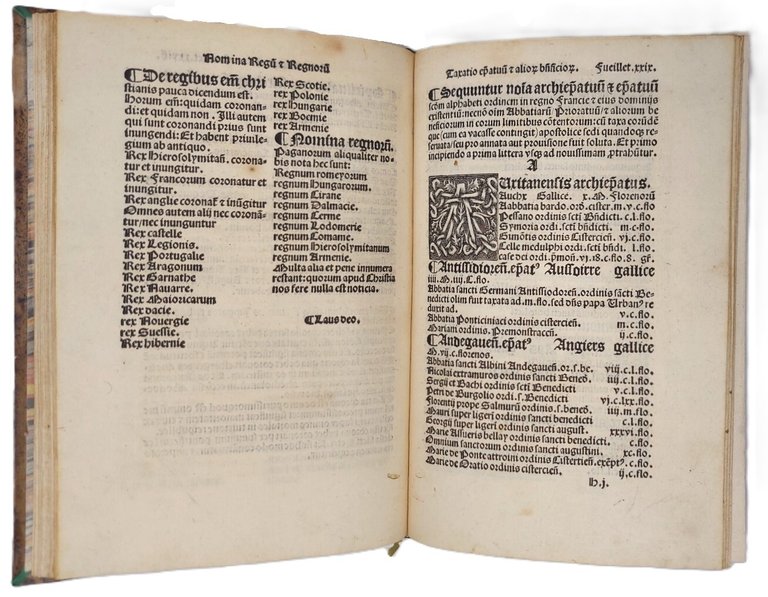 Nomina Regū ⁊ Regnorū
¶ De regibus em̄ chri
stianis pauca dicendum est.
Horum em̄: quidam coronan-
di: et quidam non. Illi autem
qui sunt coronandi prius sunt
inungendi: Et habent priuile-
gium ab antiquo.
Rex Hierosolymitan̄. corona-
tur et inungitur.
Rex Francorum coronatur et
inungitur.
Rex anglie coronat᷑ et inūgitur
Omnes autem alij nec coronā-
tur/nec inunguntur
Rex castelle
Rex Legionis.
Rex Portugalie
Rex Aragonum
Rex Garnathe
Rex Nauarre.
Rex Maioricarum
Rex dacie.
rex Nouergie
rex Suessie.
Rex hibernie
Rex Scotie.
rex Polonie
rex Hungarie
rex Boemie
rex Armenie
¶ Nomina regnorū.
Paganorum aliqualiter no-
bis nota hec sunt:
Regnum romeyorum
regnum Hungarorum.
regnum Cirane
regnum Dalmacie.
regnum Cerme
regnum Lodomerie
regnum Comame.
regnum Hierosolymitanum
regnum Armenie.
Multa alia et pene innumera
restant: quorum apud Christia
nos fere nulla est noticia.
¶ Laus deo.
Taxatio ep̄atuū ⁊ alioꝝ bn̄ficioꝝ. Fueillet.xxix.
¶ Sequuntur noīa archiep̄atuū ⁊ ep̄atuū
scd̄m alphabeti ordinem in regno Francie ⁊ eius dominijs
existentiū: necnō oīm Abbatiarū Prioratuū ⁊ aliorum be
neficiorum in eorum limitibus cōtentorum: cū taxa eorūdē
que (cum ea vacasse contingit) apostolice sedi quandoq; re
seruata/seu pro annata aut prouisione fuit soluta. Et primo
incipiendo a prima littera vsq; ad nouissimam, ꝓtrahūtur.
A
Auritanensis archiep̄atus.
Auchx Gallice. x. M. Florenorū
Aabbatia bardo.ord.cister.m.v.c.flo.
Pessano ordinis scti Bn̄dicti. c.l.flo.
Symoria ordi. scti bn̄dicti. m.c.
Simōtis ordinis Cistercien̄. vj.c.flo.
Celle meduiphi ordi.scti bn̄di. c.l.flo.
case dei ordi. p̄mon̄.vj.18.c.flo.8. gr̄.
¶ Antissidioren̄.ep̄at⁹ Aussoirre gallice
iiij.M.iiij.C.flo.
Abbatia sancti Germani Antissiodoren̄.ordinis sācti Be-
nedicti olim fuit taxata ad.m.flo.sed dn̄s papa Urban⁹ re
duxit ad. v.c.flo.
Abbatia Ponticiniaci ordinis cistercien̄. m.c.flo.
Mariam ordinis. Premonstracen̄. ij.c.flo.
¶ Andegauen̄.ep̄at⁹ Angiers gallice
M.vij.c.florenos.
Abbatia sancti Albini Andegauen̄.or.s.be. viij.c.l.flo.
Nicolai extramuros ordinis sancti Benes. iiij.c.l.flo.
Sergij et Bachi ordinis scti Benedicti v.c.l.flo.
Petri de Burgolio ordi.s.Benedicti vj.c.lxx.flo.
Florentij prope Salmurū ordinis.s.benes. iiij.m.flo.
Mauri super ligeri ordinis sancti benedicti c.l.flo.
Georgij super ligeri ordinis sancti august. xxxvi.flo.
Marie Assueris bellay ordinis sancti benedicti c.flo.
Omnium sanctorum ordinis sancti augustini. xc.flo.
Marie de Ponte attroini ordinis Cistertien̄.exēpt⁹. c.flo.
Marie de Oratio ordinis cistercien̄. ij.c.flo.
H.j.